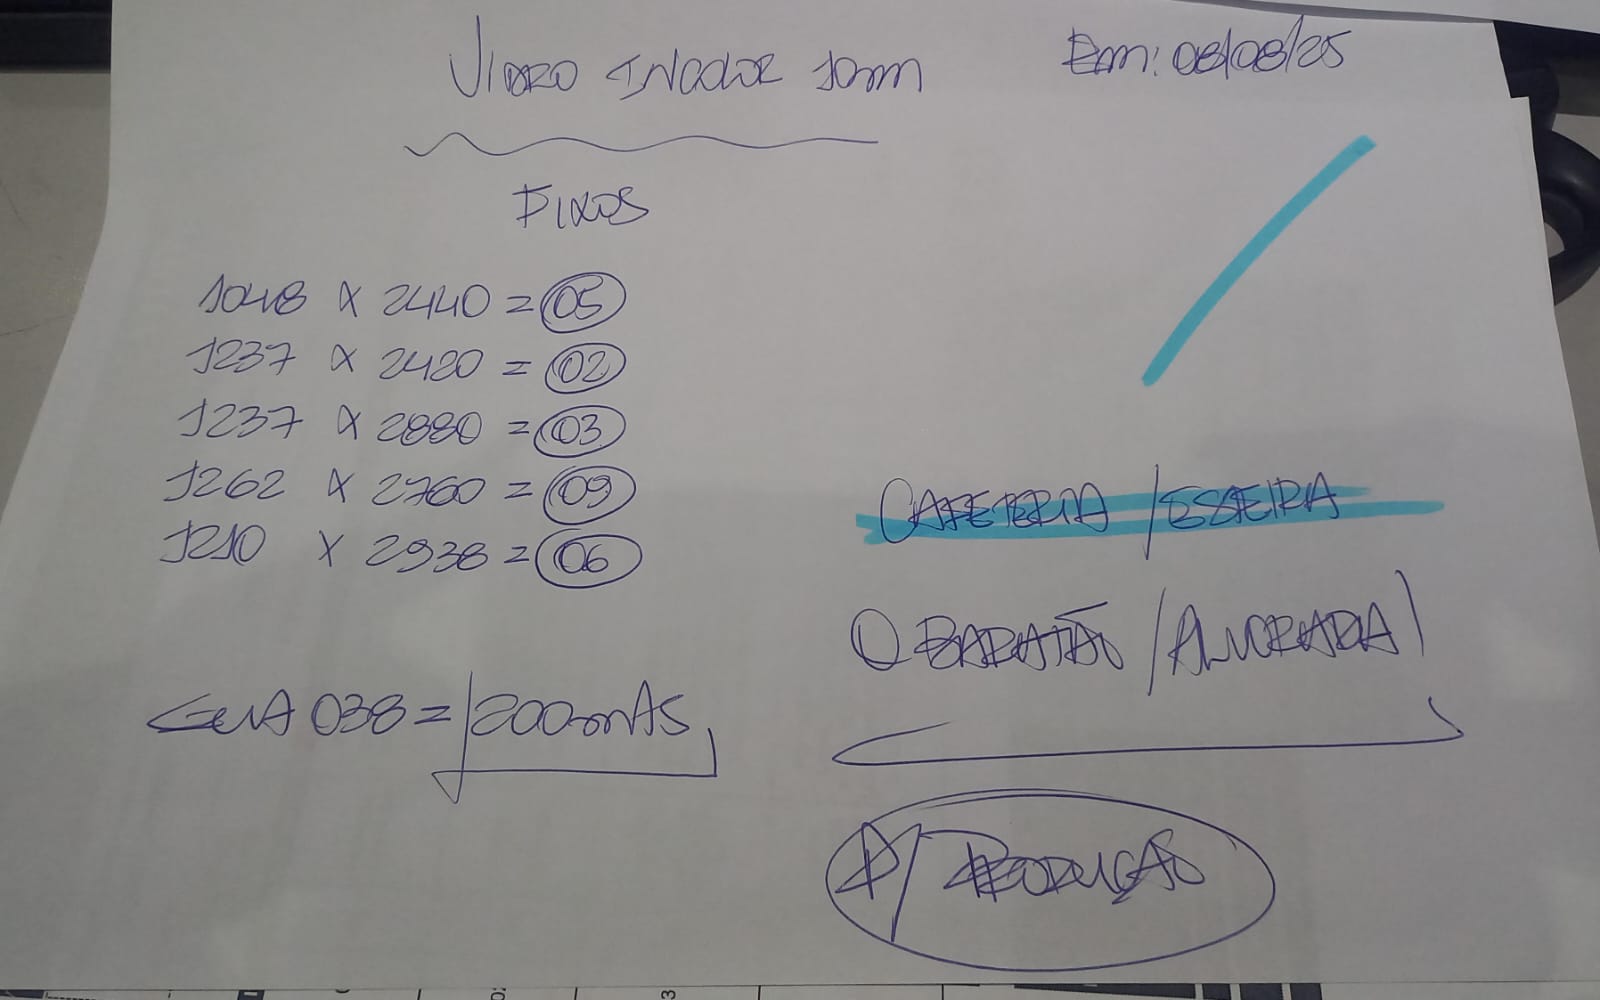 VIDRO INCOLOR 10mm
Em: 08/08/25
FIXOS
1048 X 2440 = 05
1237 X 2420 = 02
1237 X 2880 = 03
1262 X 2760 = 09
1210 X 2938 = 06
CAFETERIA / ESTEIRA
O BARATÃO / ALVORADA
GUIA 038 = 200mAS
P/ PRODUÇÃO